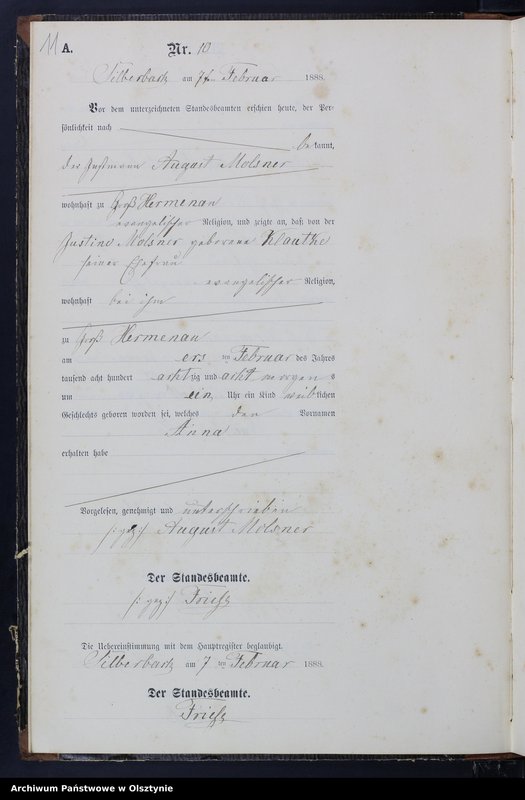 11 A. Nr. 10
Silberbach am 7ten Februar 1888.
Vor dem unterzeichneten Standesbeamten erschien heute, der Per-
sönlichkeit nach
bekannt,
der Instmann August Molsner
wohnhaft zu Groß Hermenau
evangelischer Religion, und zeigte an, daß von der
Justine Molsner geborene Klauthe
seiner Ehefrau
evangelischer Religion,
wohnhaft bei ihm
zu Groß Hermenau
am ers ten Februar des Jahres
tausend acht hundert achtzig und acht morgens
um ein Uhr ein Kind weiblichen
Geschlechts geboren worden sei, welches den Vornamen
Anna
erhalten habe
Vorgelesen, genehmigt und unterschrieben
/: gez :/ August Molsner
Der Standesbeamte.
/: gez :/ Friese
Die Uebereinstimmung mit dem Hauptregister beglaubigt.
Silberbach am 7 ten Februar 1888.
Der Standesbeamte.
Friese
Archiwum Państwowe w Olsztynie